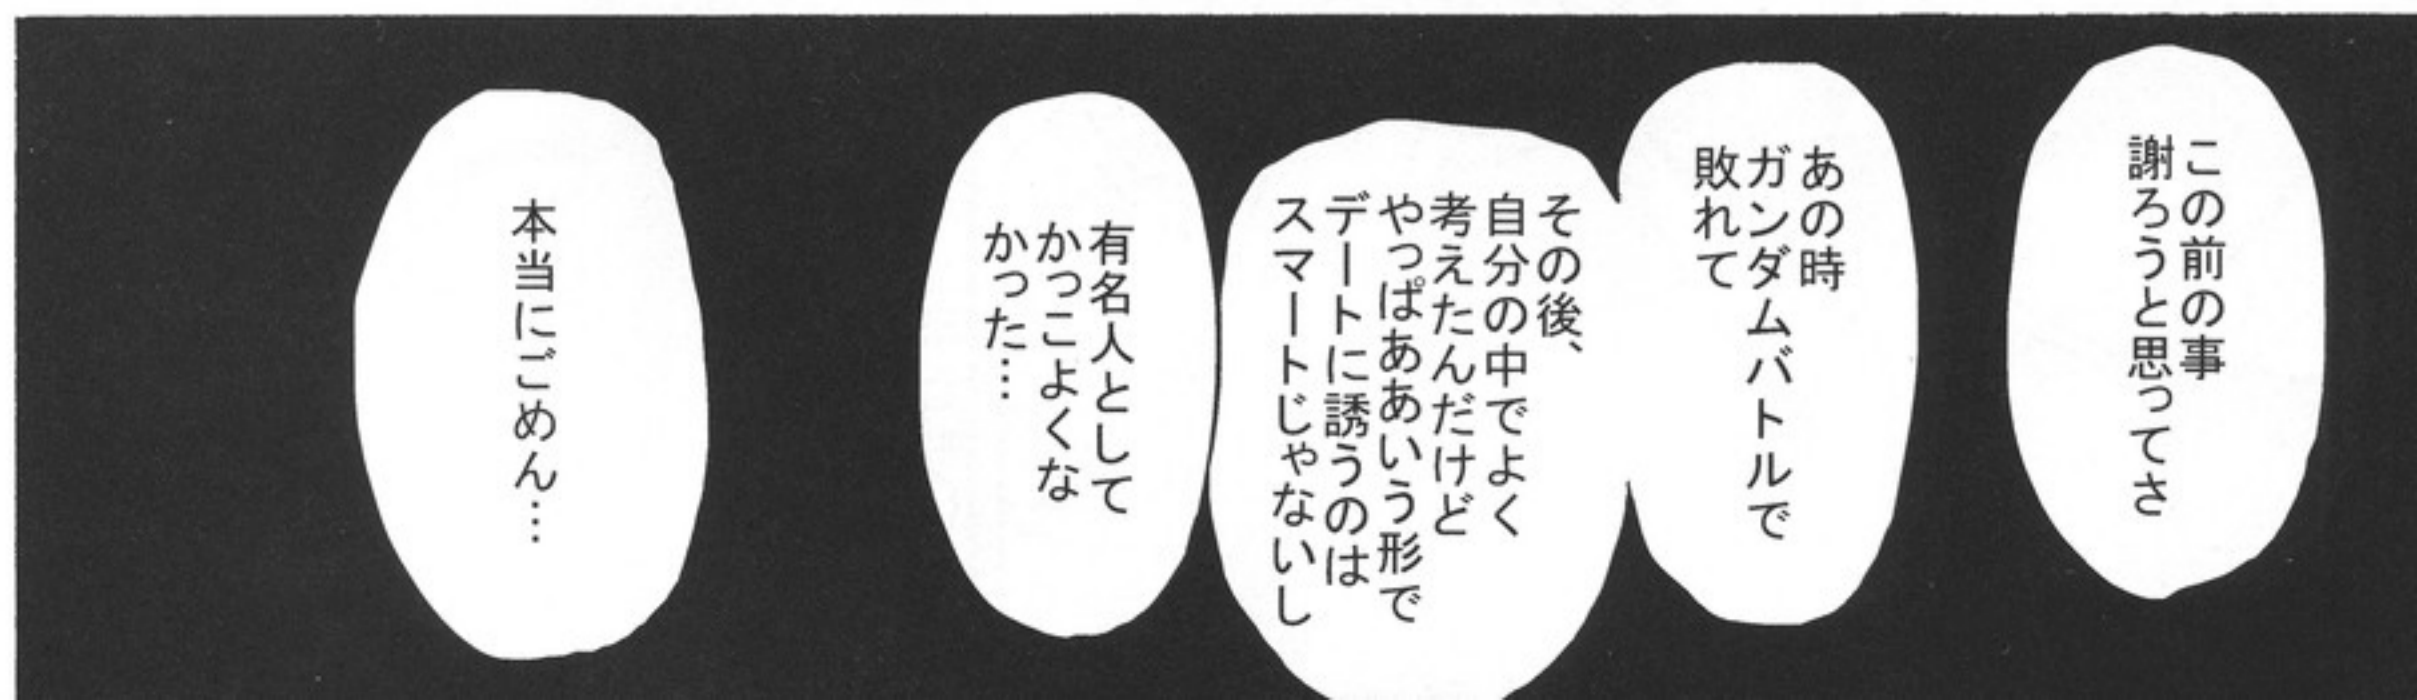 この前の事
謝ろうと思ってさ
あの時
ガンダムバトルで
敗れて
その後、
自分の中でよく
考えたんだけど
やっぱああいう形で
デートに誘うのは
スマートじゃないし
有名人として
かっこよくな
かった…
本当にごめん…